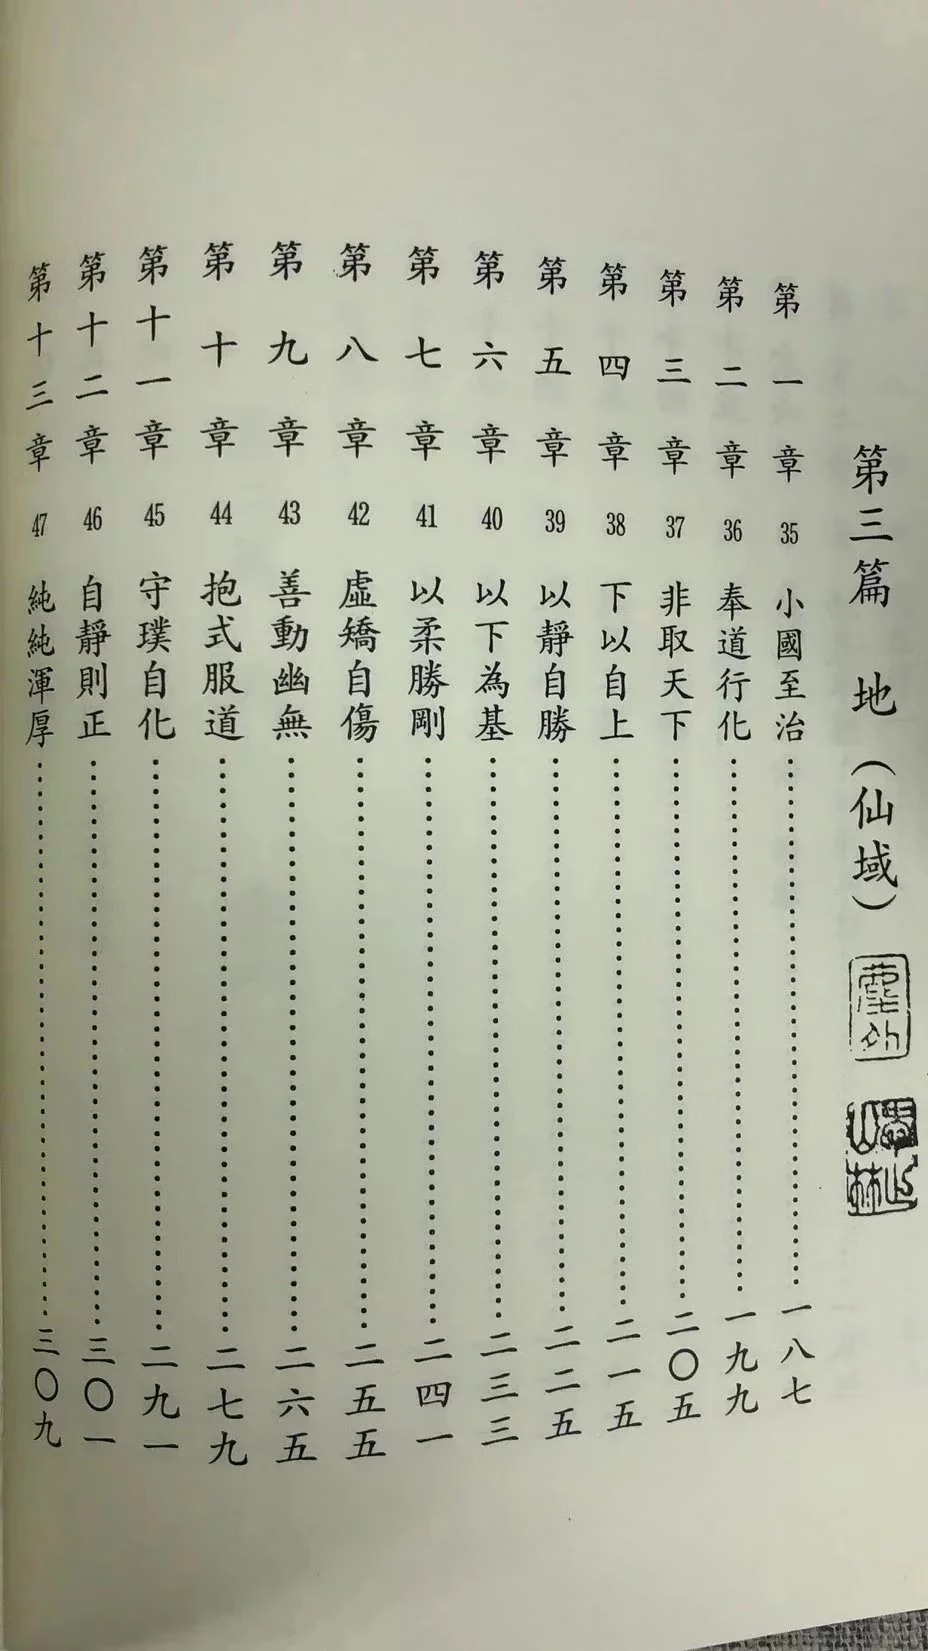 第三篇 地（仙域）
第一章 35 小國至治……一八七
第二章 36 奉道行化……一九九
第三章 37 非取天下……二〇五
第四章 38 下以自上……二一五
第五章 39 以靜自勝……二二五
第六章 40 以下為基……二三三
第七章 41 以柔勝剛……二四一
第八章 42 虛矯自傷……二五五
第九章 43 善動幽無……二六五
第十章 44 抱式服道……二七九
第十一章 45 守璞自化……二九一
第十二章 46 自靜則正……三〇一
第十三章 47 純純渾厚……三〇九